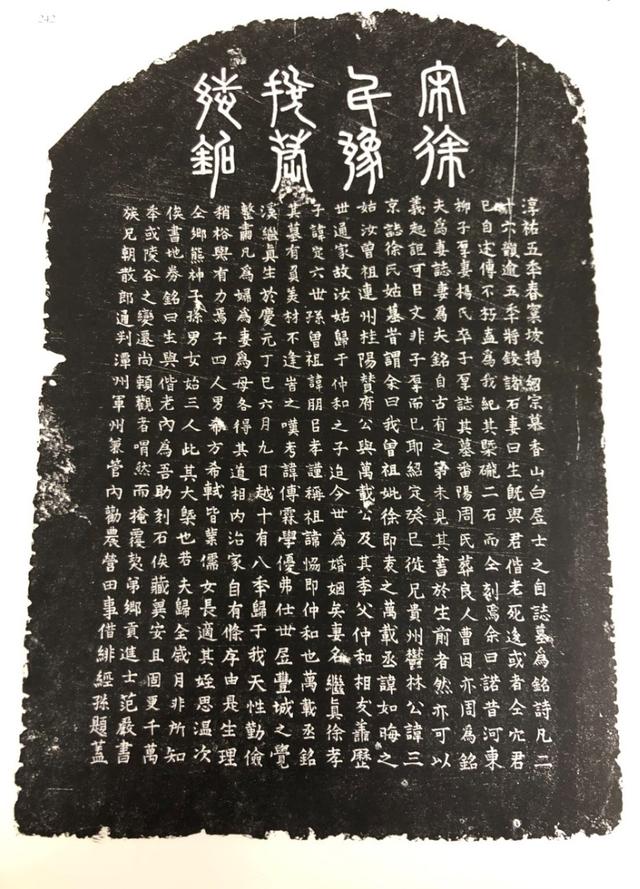 242
宋徐
淳祐五年春棠坡揭紹宗墓香山白居士之自誌墓為銘詩凡二
十六觀逾五年將鋟諸石妻曰生旣與君偕老死逺或者仝穴君
已自述傳不朽直為我紀其槩礲二石而仝刻焉余曰諾昔河東
柳子厚妻楊氏卒子厚誌其墓番陽周氏葬良人曹因亦周為銘
夫為妻誌妻為夫銘自古有之第未見其書於生前者然亦可以
義起詎可曰文非子厚而已耶紹定癸巳從兄貴州欎林公諱三
京誌徐氏姑墓甞謂余曰我曾祖妣徐即袁之萬載丞諱如晦之
姑汝曾祖連州桂陽贊府公與萬載公及其季父仲和相友善歷
世通家故汝姑歸于仲和之子迨今世為婚姻矣妻名繼真徐孝
子諱定六世孫曾祖諱朋臣孝謹稱祖諱協即仲和也萬載丞銘
其墓有負美材不逢旹之嘆考諱傳霖學優弗仕世居豐城之覺
溪繼真生於慶元丁巳六月九日越十有八年歸于我天性勤儉
整肅凡為婦為妻為母各得其道相内治家自有條序由是生理
稍裕與有力焉子四人男希方希軾皆業儒女長適其姪恩温次
仝鄉熊神子孫男女始三人此其大槩也若夫歸全歲月非所知
俟書地券銘曰生與偕老内為吾助刻石俟藏異安且固更千萬
年或陵谷之變遷尚頼觀者喟然而掩覆歟弟鄉貢進士范嚴書
族兄朝散郎通判潭州軍州兼管内勸農營田事借緋經孫題蓋